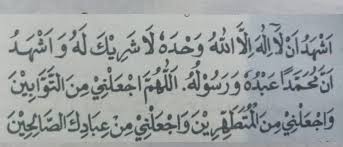 اَشْهَدُ اَنْ لَآ اِلٰهَ اِلَّا اللهُ وَحْدَهُ لَا شَرِيْكَ لَهُ وَ اَشْهَدُ
اَنَّ مُحَمَّدًا عَبْدُهُ وَرَسُوْلُهُ. اَللّٰهُمَّ اجْعَلْنِيْ مِنَ التَّوَّابِيْنَ
وَاجْعَلْنِيْ مِنَ الْمُتَطَهِّرِيْنَ وَاجْعَلْنِيْ مِنْ عِبَادِكَ الصَّالِحِيْنَ